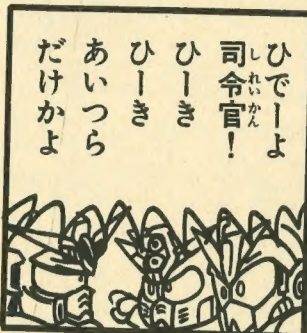 ひでーよ
司令官！
ひーき
ひーき
あいつら
だけかよ